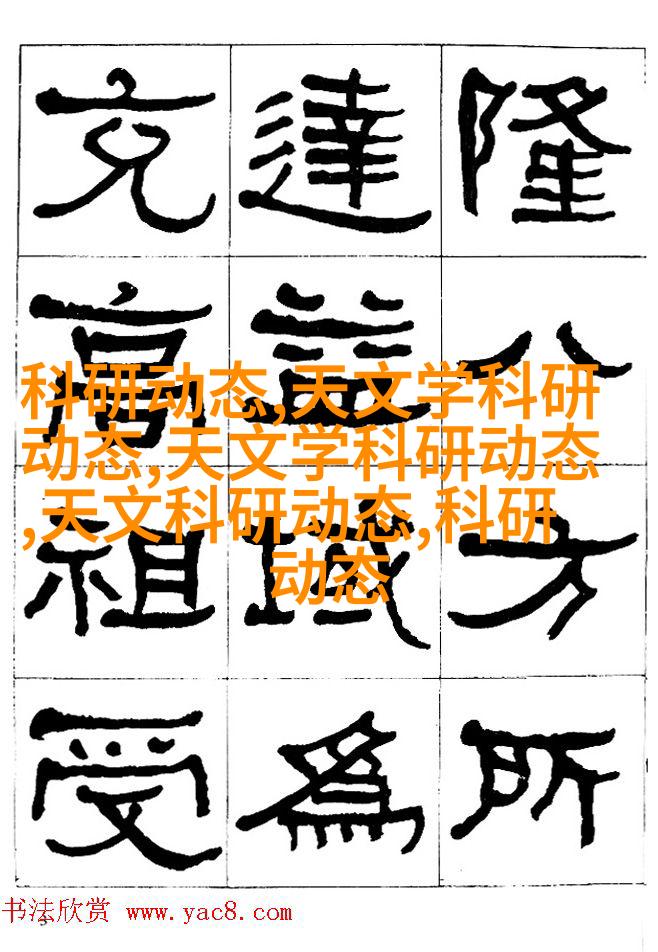 隆八方所
達益域爲
充高祖受
科研动态,天文学科研
动态,天文学科研动态
,天文科研动态,科研
动态
书法欣赏 www.yac8.com